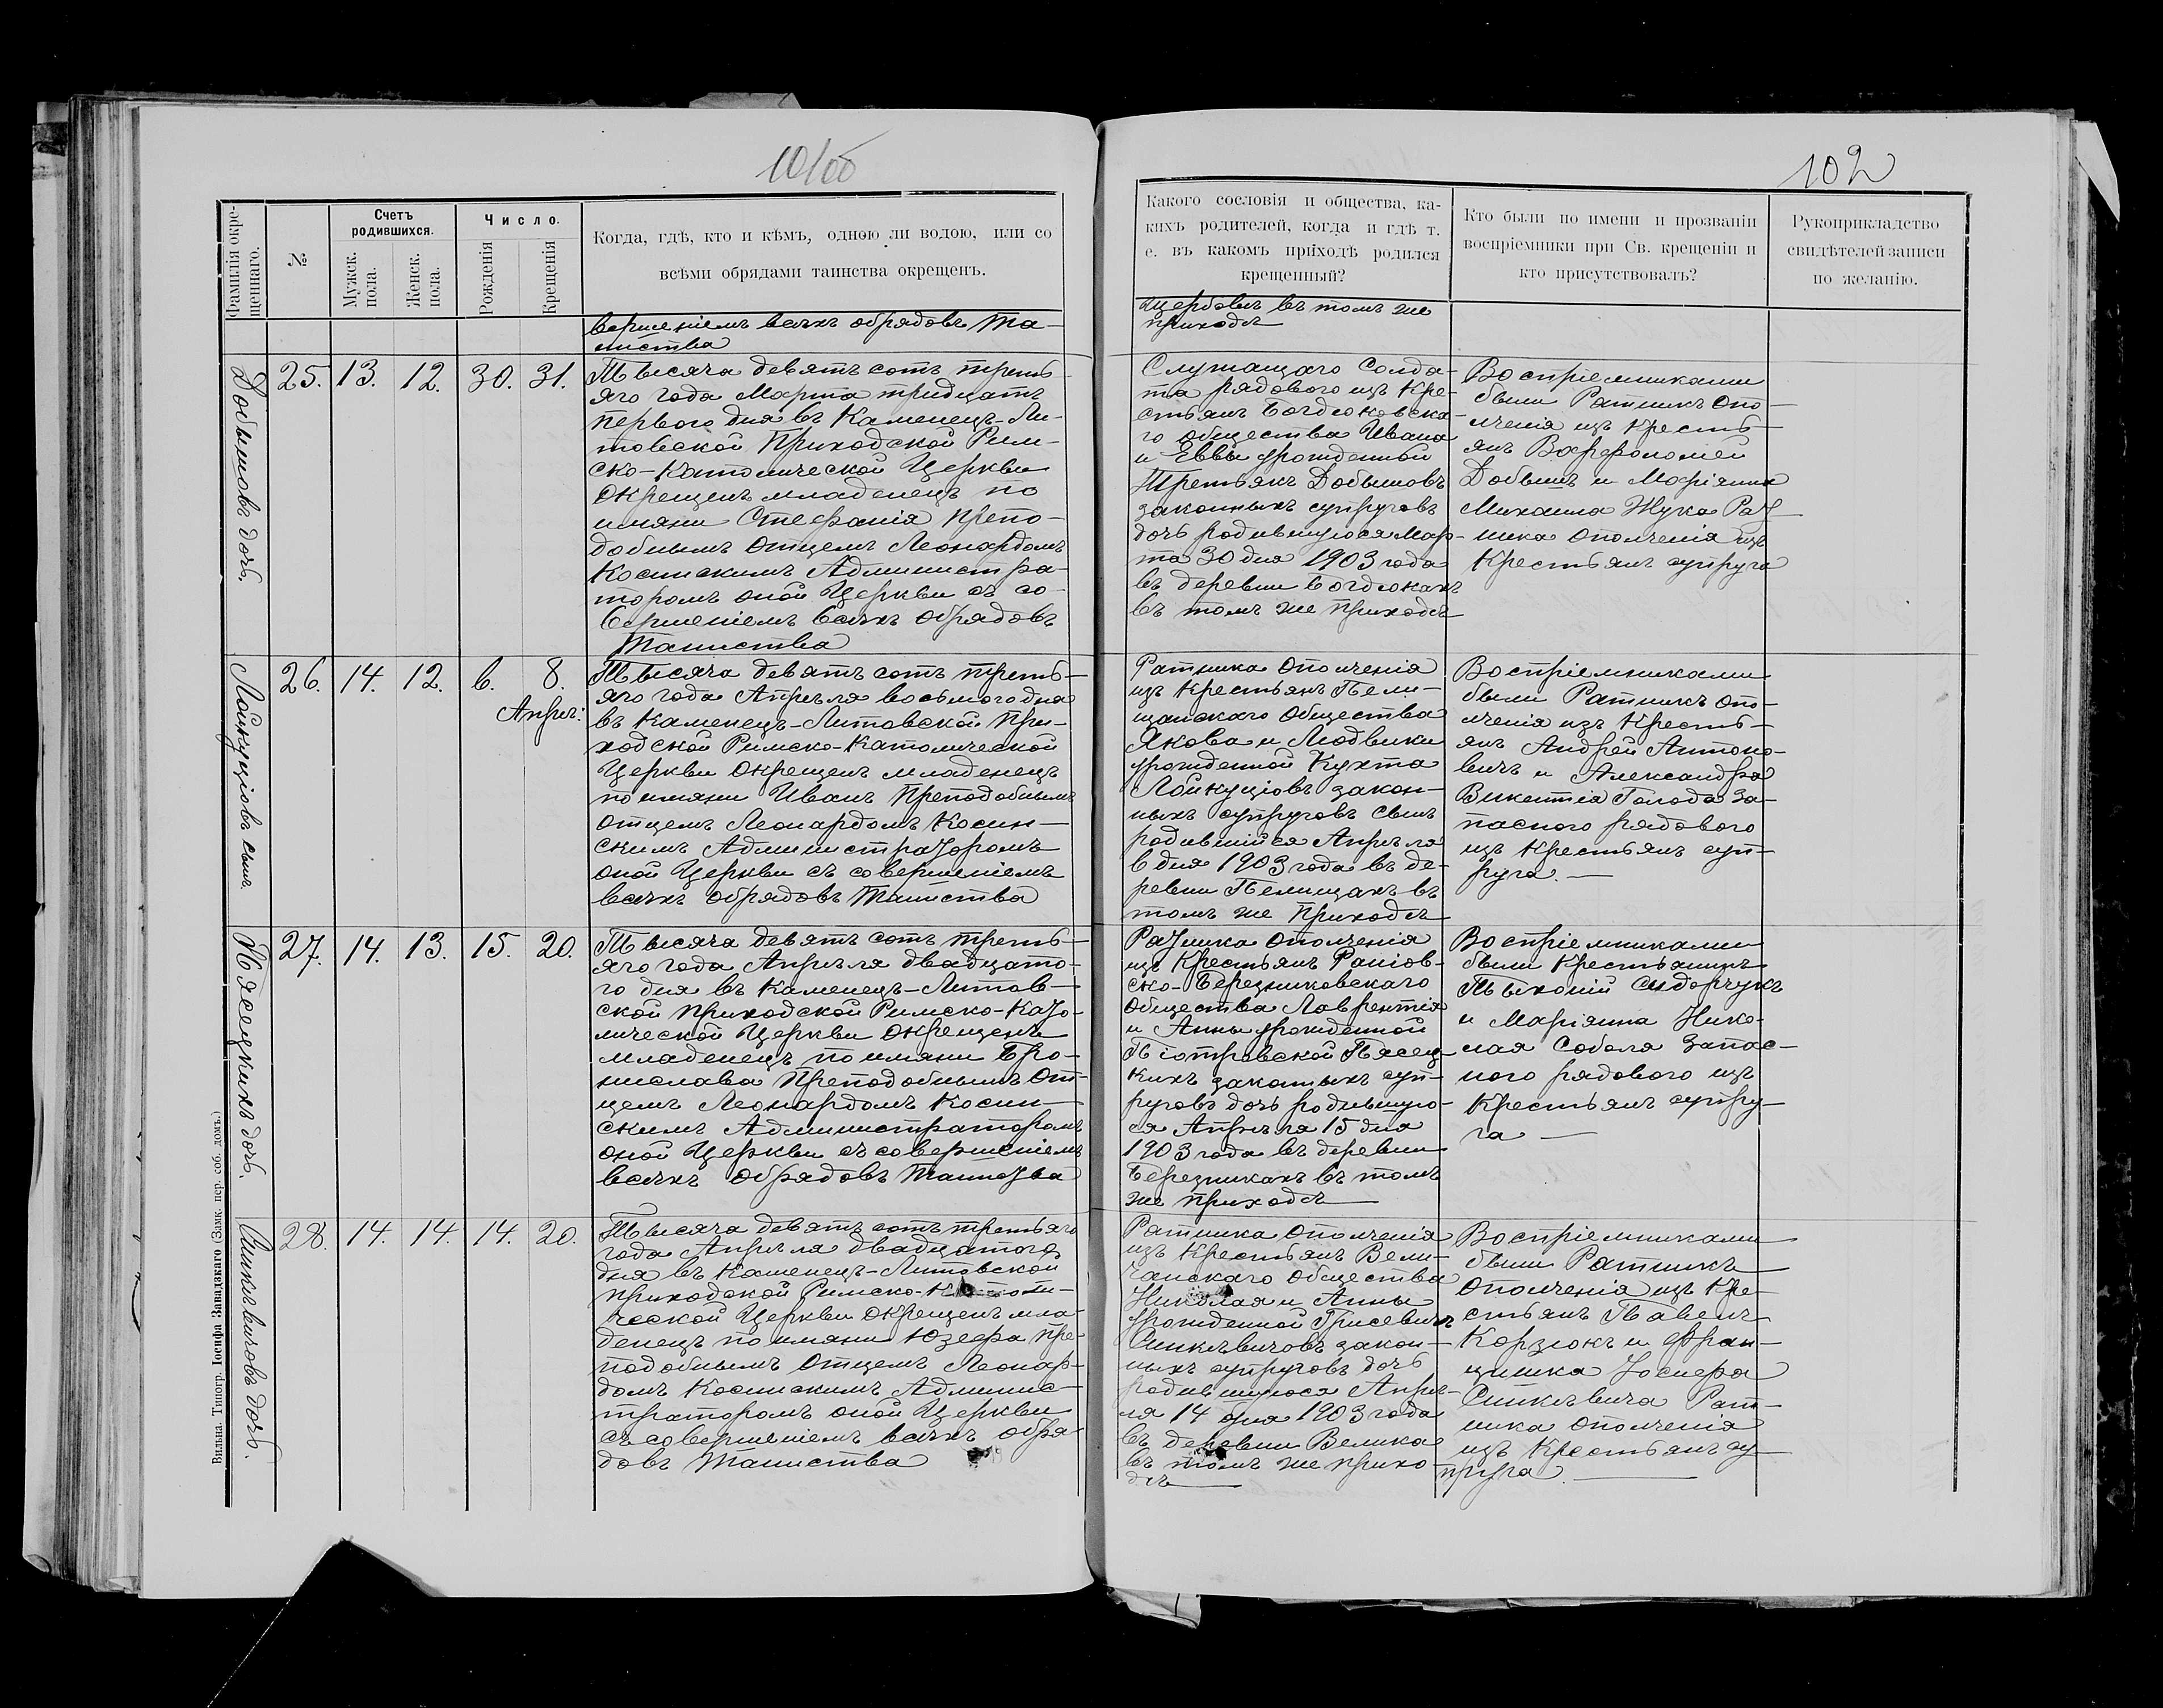 10/00
102
Фамилія окре-
щеннаго.
№
Счетъ
родившихся.
Мужск.
пола.
Женск.
пола.
Число.
Рожденія
Крещенія
Когда, гдѣ, кто и кѣмъ, одною ли водою, или со
всѣми обрядами таинства окрещенъ.
Какого сословія и общества, ка-
кихъ родителей, когда и гдѣ т.
е. въ какомъ приходѣ родился
крещенный?
Кто были по имени и прозванію
воспріемники при Св. крещеніи и
кто присутствовалъ?
Рукоприкладство
свидѣтелей записи
по желанію.
вершеніемъ всѣхъ обрядовъ Та-
инства
въ томъ же
приходѣ
Добышовъ дочь.
25. 13. 12. 30. 31.
Тысяча девятьсотъ треть-
яго года Марта тридцать
перваго дня въ Каменецъ-Ли-
товской Приходской Рим-
ско-Католической Церкви
окрещенъ младенецъ по
имяни Стефанія Препо-
добнымъ Отцемъ Леонардомъ
Косинскимъ Администра-
торомъ оной Церкви съ со-
вершеніемъ всѣхъ обрядовъ
Таинства
Служащаго Солда-
та рядового изъ Кре-
стьянъ Богдюковска-
го общества Ивана
и Еввы урожденной
Третьякъ Добышовъ
законныхъ супруговъ
дочь родившуюся Мар-
та 30 дня 1903 года
въ деревни Богдюкахъ
въ томъ же приходѣ
Воспріемниками
были Ратникъ Опо-
лченія изъ Кресть-
янъ Варфоломей
Добышъ и Маріянна
Михаила Жука Рат-
ника ополченія изъ
Крестьянъ супруга
Лойкуціовъ сынъ.
26. 14. 12. 6. 8.
Апрѣл:
Тысяча девятьсотъ треть-
яго года Апрѣля восьмого дня
въ Каменецъ-Литовской При-
ходской Римско-Католической
Церкви окрещенъ младенецъ
по имяни Иванъ Преподобнымъ
Отцемъ Леонардомъ Косин-
скимъ Администраторомъ
оной Церкви съ совершеніемъ
всѣхъ обрядовъ Таинства
Ратника Ополченія
изъ Крестьянъ Пели-
щанскаго Общества
Якова и Людвики
урожденной Кухта
Лойкуціовъ закон-
ныхъ супруговъ сынъ
родившійся Апрѣля
6 дня 1903 года въ де-
ревни Пелищахъ въ
томъ же Приходѣ
Воспріемниками
были Ратникъ опо-
лченія изъ Кресть-
янъ Андрей Антоно-
вичъ и Александра
Викентія Голода За-
пасного рядового
изъ Крестьянъ суп-
руга. —
Пясецкихъ дочь.
27. 14. 13. 15. 20.
Тысяча девятьсотъ треть-
яго года Апрѣля двадцато-
го дня въ Каменецъ-Литов-
ской Приходской Римско-Като-
лической Церкви окрещенъ
младенецъ по имяни Бро-
нислава Преподобнымъ От-
цемъ Леонардомъ Косин-
скимъ Администраторомъ
оной Церкви съ совершеніемъ
всѣхъ обрядовъ Таинства
Ратника Ополченія
изъ Крестьянъ
ско-Березниковскаго
Общества Лаврентія
и Анны урожденной
Піотровской Пясец-
кихъ законныхъ суп-
руговъ дочь родившую-
ся Апрѣля 15 дня
1903 года въ деревни
Березникахъ въ томъ
же Приходѣ —
Воспріемниками
были Крестьянинъ
Тыхоній Сидорчукъ
и Маріянна Нико-
лая Соболя Запас-
ного рядового изъ
Крестьянъ супру-
га —
Синкѣвичовъ дочь.
28. 14. 14. 14. 20.
Тысяча девятьсотъ третьяго
года Апрѣля двадцатого
дня въ Каменецъ-Литовской
приходской Римско-Католи-
ческой Церкви окрещенъ мла-
денецъ по имяни Юзефа Пре-
подобнымъ Отцемъ Леонар-
домъ Косинскимъ Админис-
траторомъ оной Церкви
съ совершеніемъ всѣхъ обря-
довъ Таинства
Ратника Ополченія
изъ Крестьянъ Вели-
чанскаго Общества
Николая и Анны
урожденной Грисевичъ
Синкѣвичовъ закон-
ныхъ супруговъ дочь
родившуюся Апрѣ-
ля 14 дня 1903 года
въ деревни Велика
въ томъ же прихо-
дѣ —
Воспріемниками
были Ратникъ
Ополченія изъ Кре-
стьянъ Павелъ
Корзюкъ и Фран-
цишка Іосифа
Синкѣвича Рат-
ника ополченія
изъ Крестьянъ су-
пруга. —
Вильна. Типогр. Іосифа Завадзкаго (Замк. пер. соб. домъ.)